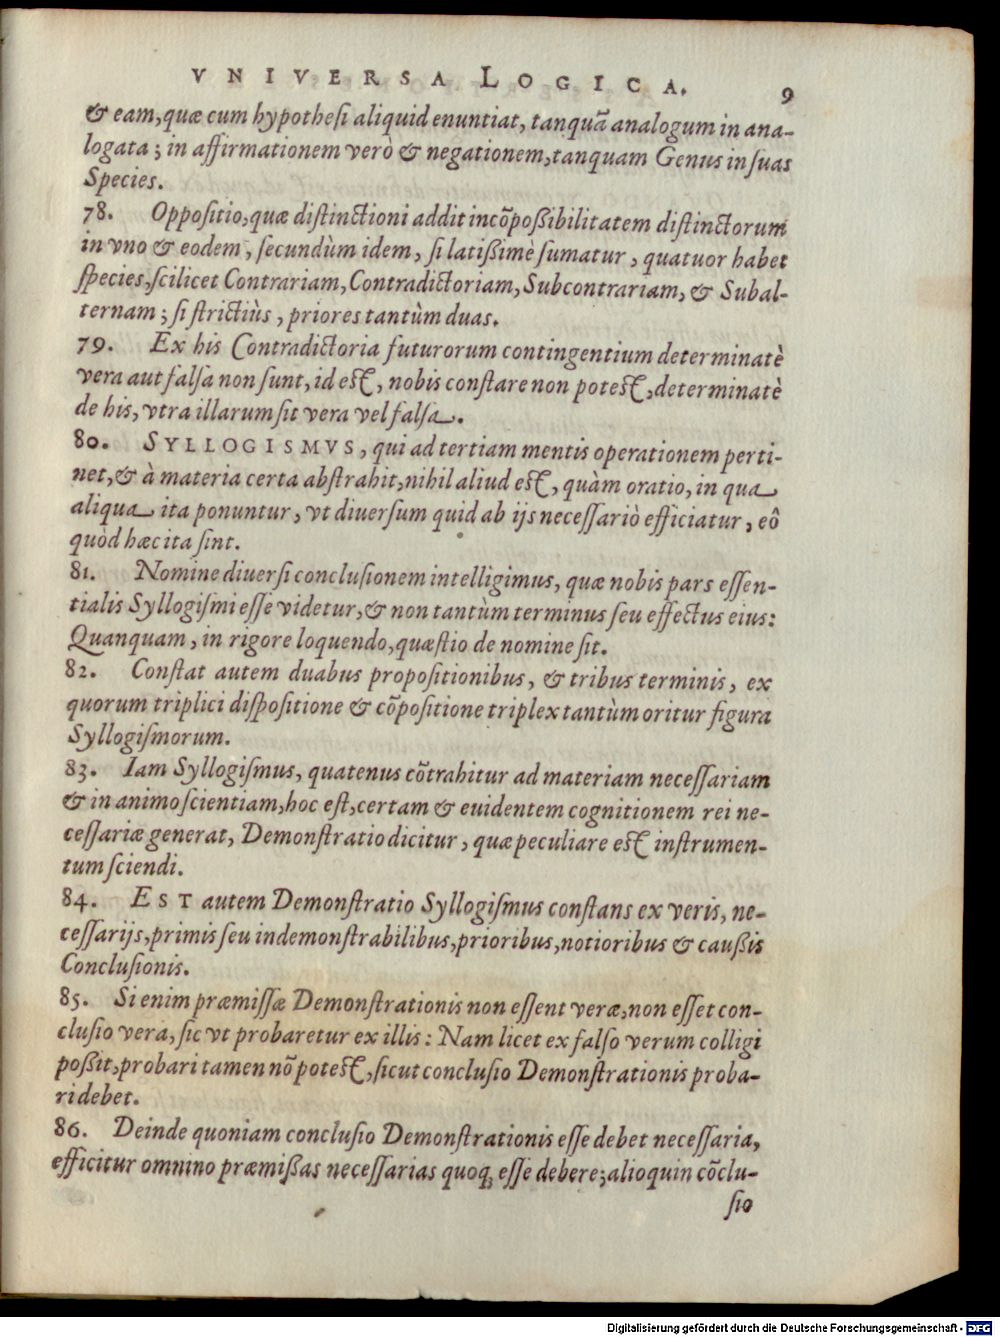 VNIVERSA LOGICA. 9
& eam, quæ cum hypothesi aliquid enuntiat, tanquã analogum in ana-
logata; in affirmationem verò & negationem, tanquam Genus in suas
Species.
78. Oppositio, quæ distinctioni addit incõpoßibilitatem distinctorum
in vno & eodem, secundùm idem, si latißimè sumatur, quatuor habet
species, scilicet Contrariam, Contradictoriam, Subcontrariam, & Subal-
ternam; si strictiùs, priores tantùm duas.
79. Ex his Contradictoria futurorum contingentium determinatè
vera aut falsa non sunt, id est, nobis constare non potest, determinatè
de his, vtra illarum sit vera vel falsa.
80. SYLLOGISMVS, qui ad tertiam mentis operationem perti-
net, & à materia certa abstrahit, nihil aliud est, quàm oratio, in qua
aliqua ita ponuntur, vt diuersum quid ab ijs necessariò efficiatur, eô
quòd hæc ita sint.
81. Nomine diuersi conclusionem intelligimus, quæ nobis pars essen-
tialis Syllogismi esse videtur, & non tantùm terminus seu effectus eius:
Quanquam, in rigore loquendo, quæstio de nomine sit.
82. Constat autem duabus propositionibus, & tribus terminis, ex
quorum triplici dispositione & cõpositione triplex tantùm oritur figura
Syllogismorum.
83. Iam Syllogismus, quatenus cõtrahitur ad materiam necessariam
& in animo scientiam, hoc est, certam & euidentem cognitionem rei ne-
cessariæ generat, Demonstratio dicitur, quæ peculiare est instrumen-
tum sciendi.
84. EST autem Demonstratio Syllogismus constans ex veris, ne-
cessarijs, primis seu indemonstrabilibus, prioribus, notioribus & caußis
Conclusionis.
85. Si enim præmissæ Demonstrationis non essent veræ, non esset con-
clusio vera, sic vt probaretur ex illis: Nam licet ex falso verum colligi
poßit, probari tamen nõ potest, sicut conclusio Demonstrationis proba-
ri debet.
86. Deinde quoniam conclusio Demonstrationis esse debet necessaria,
efficitur omnino præmißas necessarias quoq; esse debere; alioquin cõclu-
sio
Digitalisierung gefördert durch die Deutsche Forschungsgemeinschaft - DFG